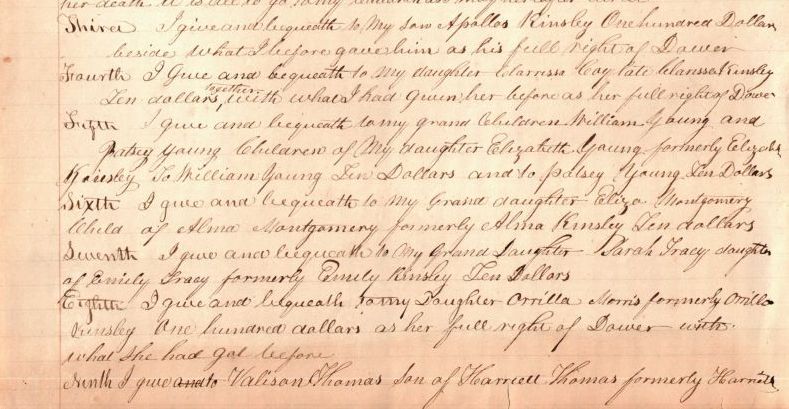 her death it is all to go to my children as may hereafter
Third I give and bequeath to My son Apollos Kinsley One hundred Dollars
beside what I before gave him as his full right of Dower
Fourth I Give and bequeath to my daughter Clarissa Coy late Clarissa Kinsley
Ten dollars together with what I had given her before as her full right of Dower
Fifth I give and bequeath to my grand Children William Young and
Patsey Young Children of My daughter Elizabeth Young formerly Elizabeth
Kinsley To William Young Ten Dollars and to Patsey Young Ten Dollars
Sixth I give and bequeath to my Grand daughter Eliza Montgomery
Child of Alma Montgomery formerly Alma Kinsley Ten dollars
Seventh I give and bequeath to My Grand Daughter Sarah Tracy daughter
of Emily Tracy formerly Emily Kinsley Ten Dollars
Eighth I give and bequeath to my Daughter Orrilla Morris formerly Orrilla
Kinsley One hundred dollars as her full right of Dower with
what She had got before
Ninth I give and to Valison Thomas Son of Harriett Thomas formerly Harriett